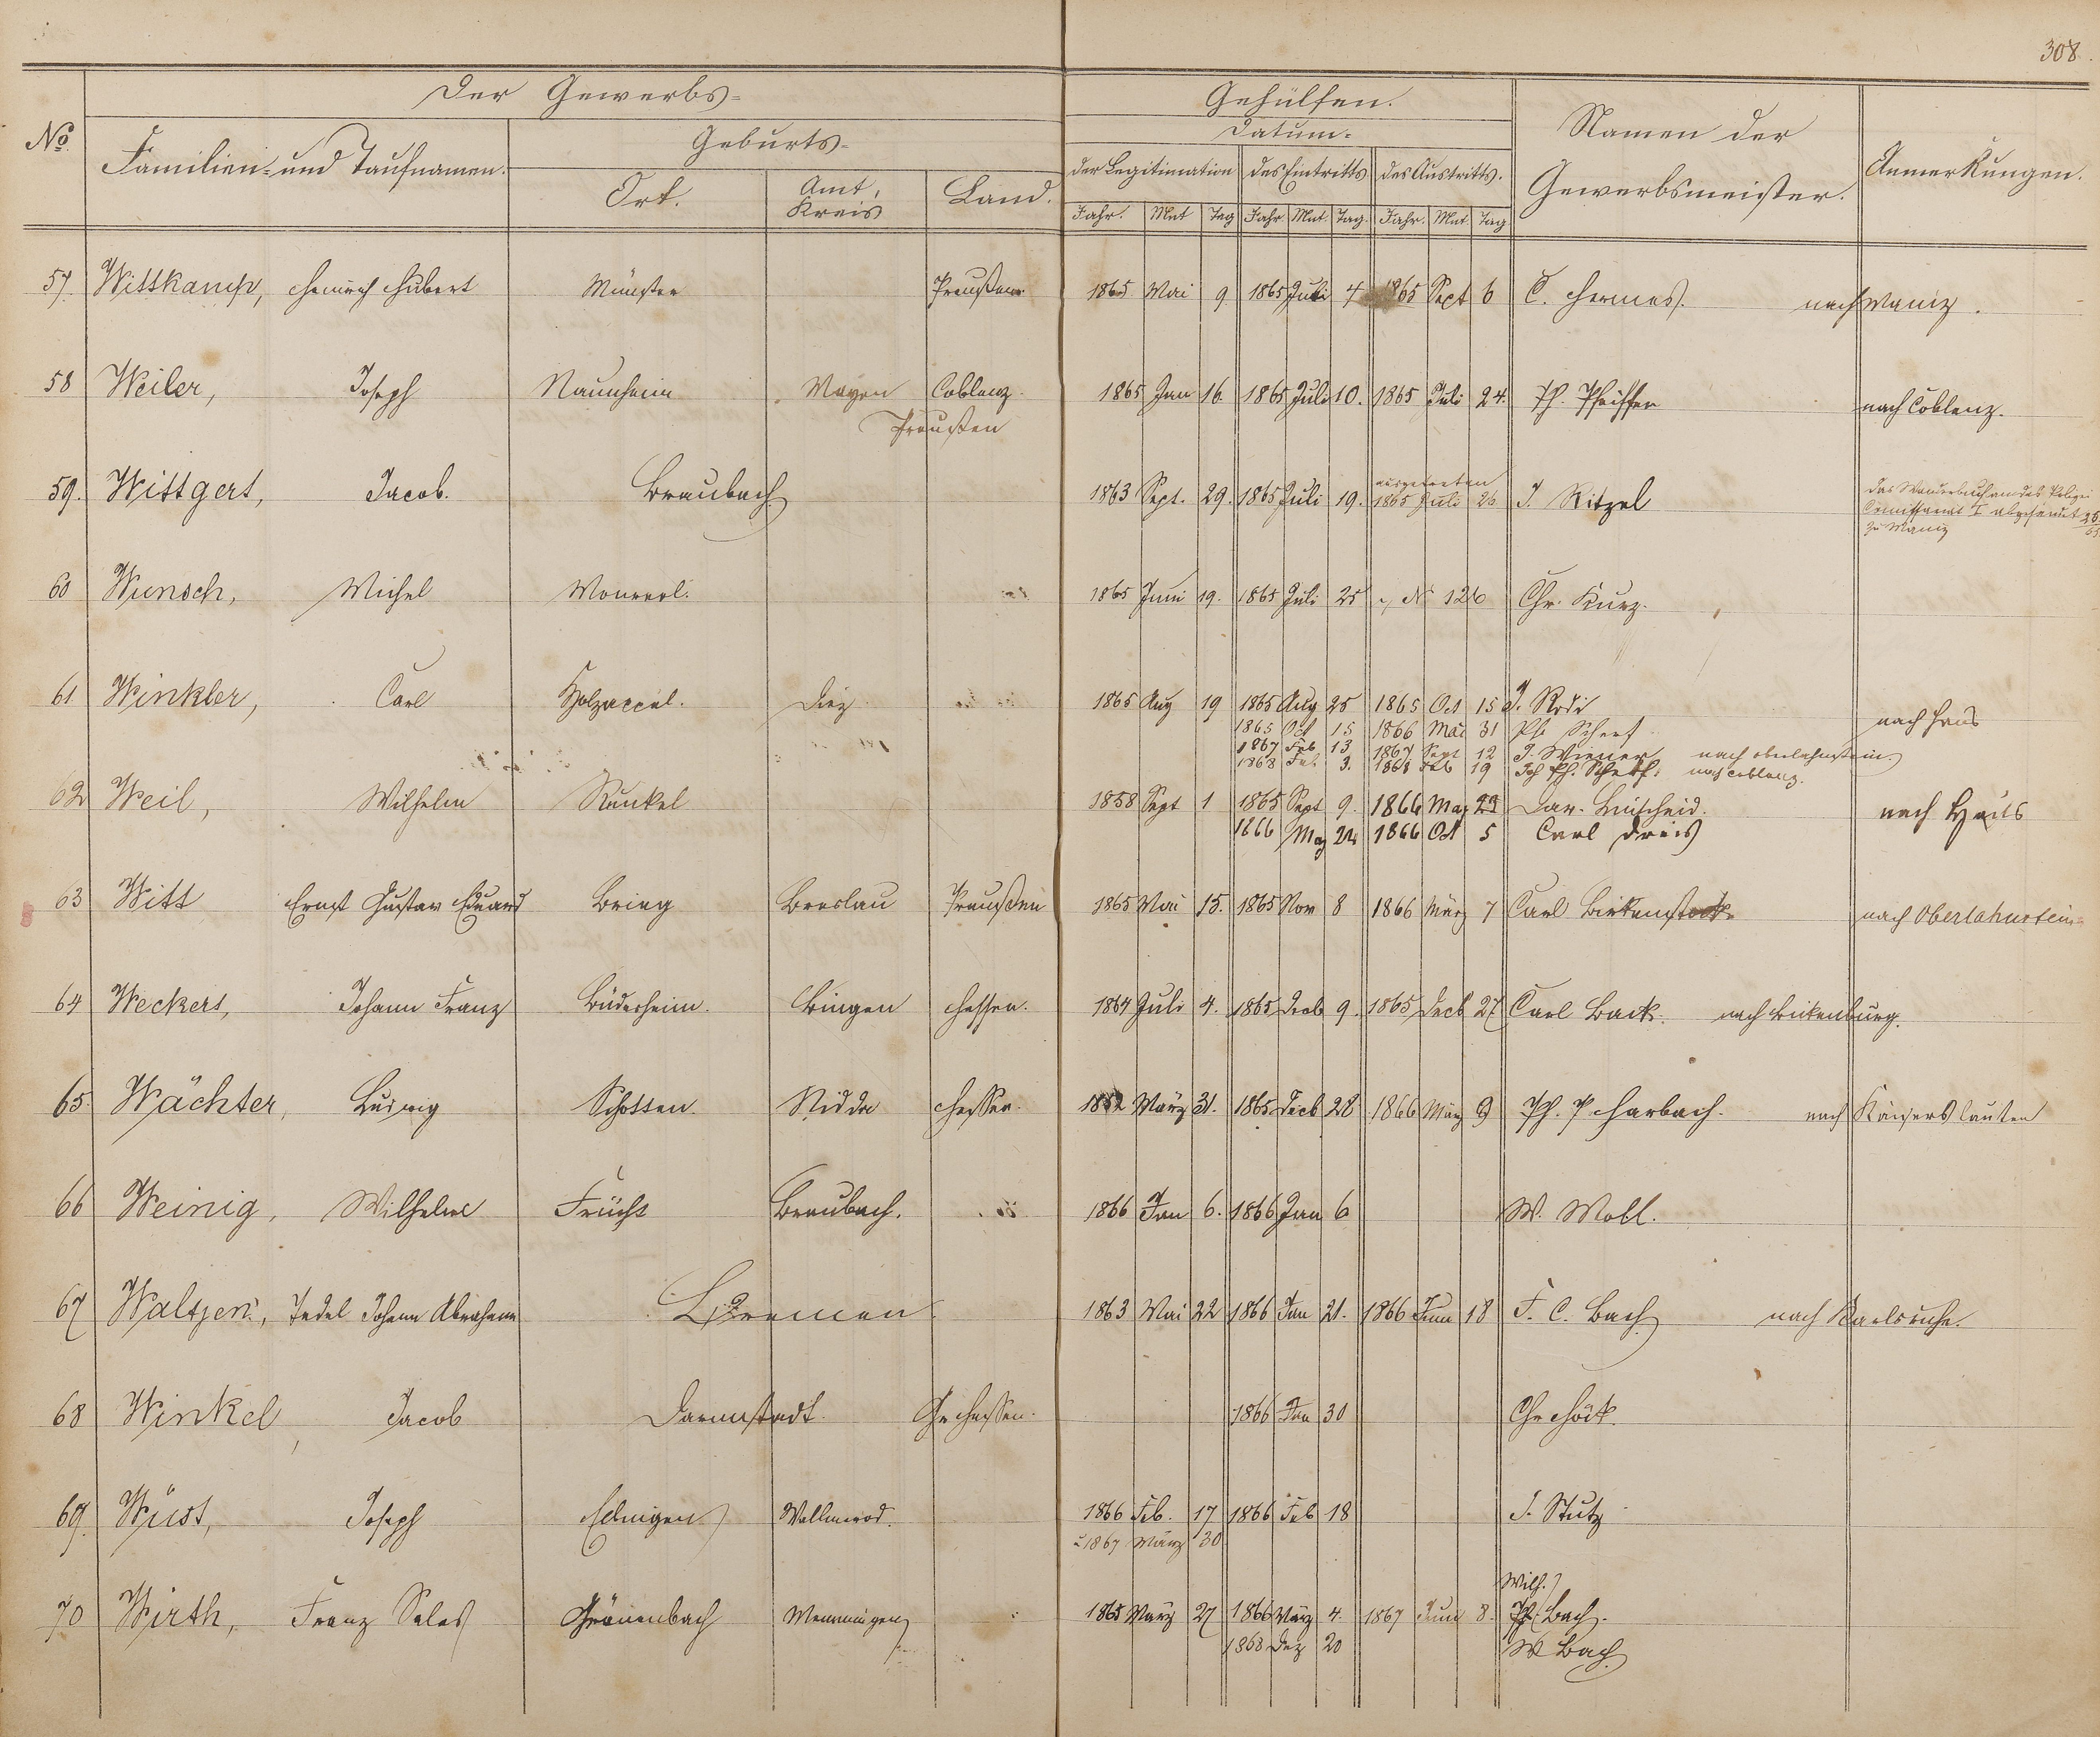 308.
Der Gewerbs=
Gehülfen.
No.
Familien= und Taufnamen.
Geburts=
Ort.
Amt, Kreis
Land.
Datum=
der Legitimation
des Eintritts
des Austritts.
Jahr. Mnt Tag Jahr Mnt. Tag. Jahr. Mnt. Tag
Namen der
Gewerbsmeister.
Anmerkungen.
57. Wittkamp, Heinrich Hubert Münster Preußen 1865 Mai 9. 1865 Juli 4 1865 Sept 6 C. Hermes. nach Mainz.
58 Weiler, Joseph Naunheim Mayen Coblenz. 1865 Jan 16. 1865 Juli 10. 1865 Juli 24. Ph. Pfeiffer nach Coblenz.
Preußen
59. Wittgert, Jacob. Braubach. 1863 Sept. 29. 1865 Juli 19. 1865 Juli 26 J. Ritzel
ausgetreten
das Wanderbuch an das Polizei
Comissariat I abgesandt 26/65
zu Mainz
60 Wunsch, Michel 1865 Juni 19. 1865 Juli 25 No 126 Chr. Kurz.
61. Winkler, Carl Holzappel. Diez 1865 Aug 19 1865 Aug 25 1865 Oct 15 J. Rodi
1865 Oct 15 1866 Mai 31 Ph Scherf nach Haus
1867 Feb 13 1867 Sept 12 J. Wiener nach Oberlahnstein.
1868 Feb. 3. 1868 Feb 19 Joh Ph. Scherf. nach Coblenz.
62 Weil, Wilhelm Runkel 1858 Sept 1 1865 Sept 9. 1866 May 29 nach Haus
1866 May 24 1866 Oct 5 Carl Dreis
63 Witt Ernst Gustav Eduard Brieg Breslau Preußen 1865 Mai 15. 1865 Nov 8 1866 März 7 Carl Birkenstock nach Oberlahnstein
64 Weckert, Johann Franz Büdesheim. Bingen Hessen. 1864 Juli 4. 1865 Decb 9. 1865 Decb 27 Carl Back. nach Birkenburg.
65. Wächter, Ludwig Schotten Nidda Hessen. 1862 März 31. 1865 Decb 28 1866 März 9 Ph. P. Harbach. nach Kaiserslautern
66 Weinig, Wilhelm Frücht Braubach. 1866 Jan 6. 1866 Jan 6 W. Moll.
67 Waltjen, Tedel Johann Abraham Bremen 1863 Mai 22 1866 Jan 21. 1866 Juni 18 F. C. Bach nach Karlsruhe.
68 Winkel, Jacob Darmstadt. Gr Hessen. 1866 Jan 30 Chr Höck.
69. Wüst, Joseph Wallmerod. 1866 Feb. 17 1866 Feb 18 J. Stutz
1867 März 30
70 Wirth, Franz Sales Grönenbach Memmingen 1865 März 27 1866 März 4. 1867 Juni 8. Ph. Bach.
Wilh.
1868 Dez 20 W Bach